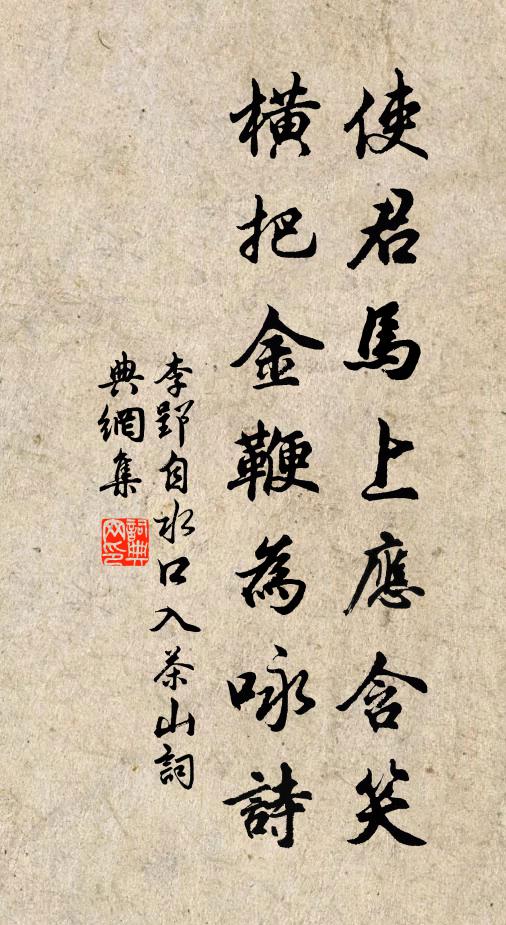 使君馬上應含笑
橫把金鞭為咏詩
李郢自水口入茶山詞
典網集
詞典網印